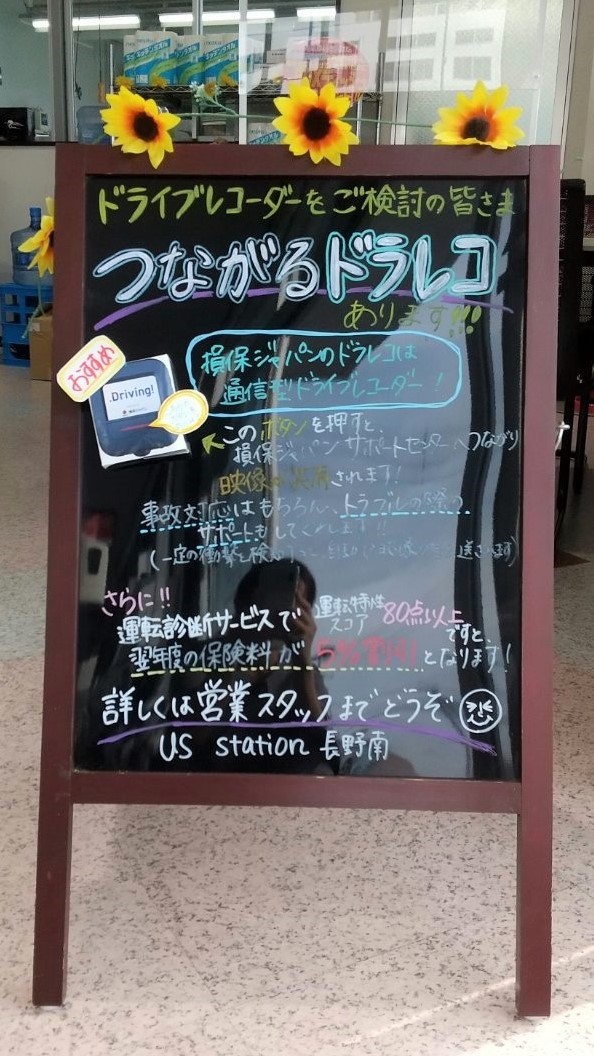 ドライブレコーダーをご検討の皆さま
つながるドラレコ
あります!!!
おすすめ
Driving!
損保ジャパンのドラレコは
通信型ドライブレコーダー!
このボタンを押すと、
損保ジャパンサポートセンターへつながり
映像が共有されます!
事故対応はもちろん、トラブルの際の
サポートもしてくれます!!
(一定の衝撃を検知すると、自動
さらに!!
運転診断サービスで 運転特性スコア 80点以上ですと、
翌年度の保険料が 5%割引 となります!
詳しくは営業スタッフまでどうぞ
US station 長野南